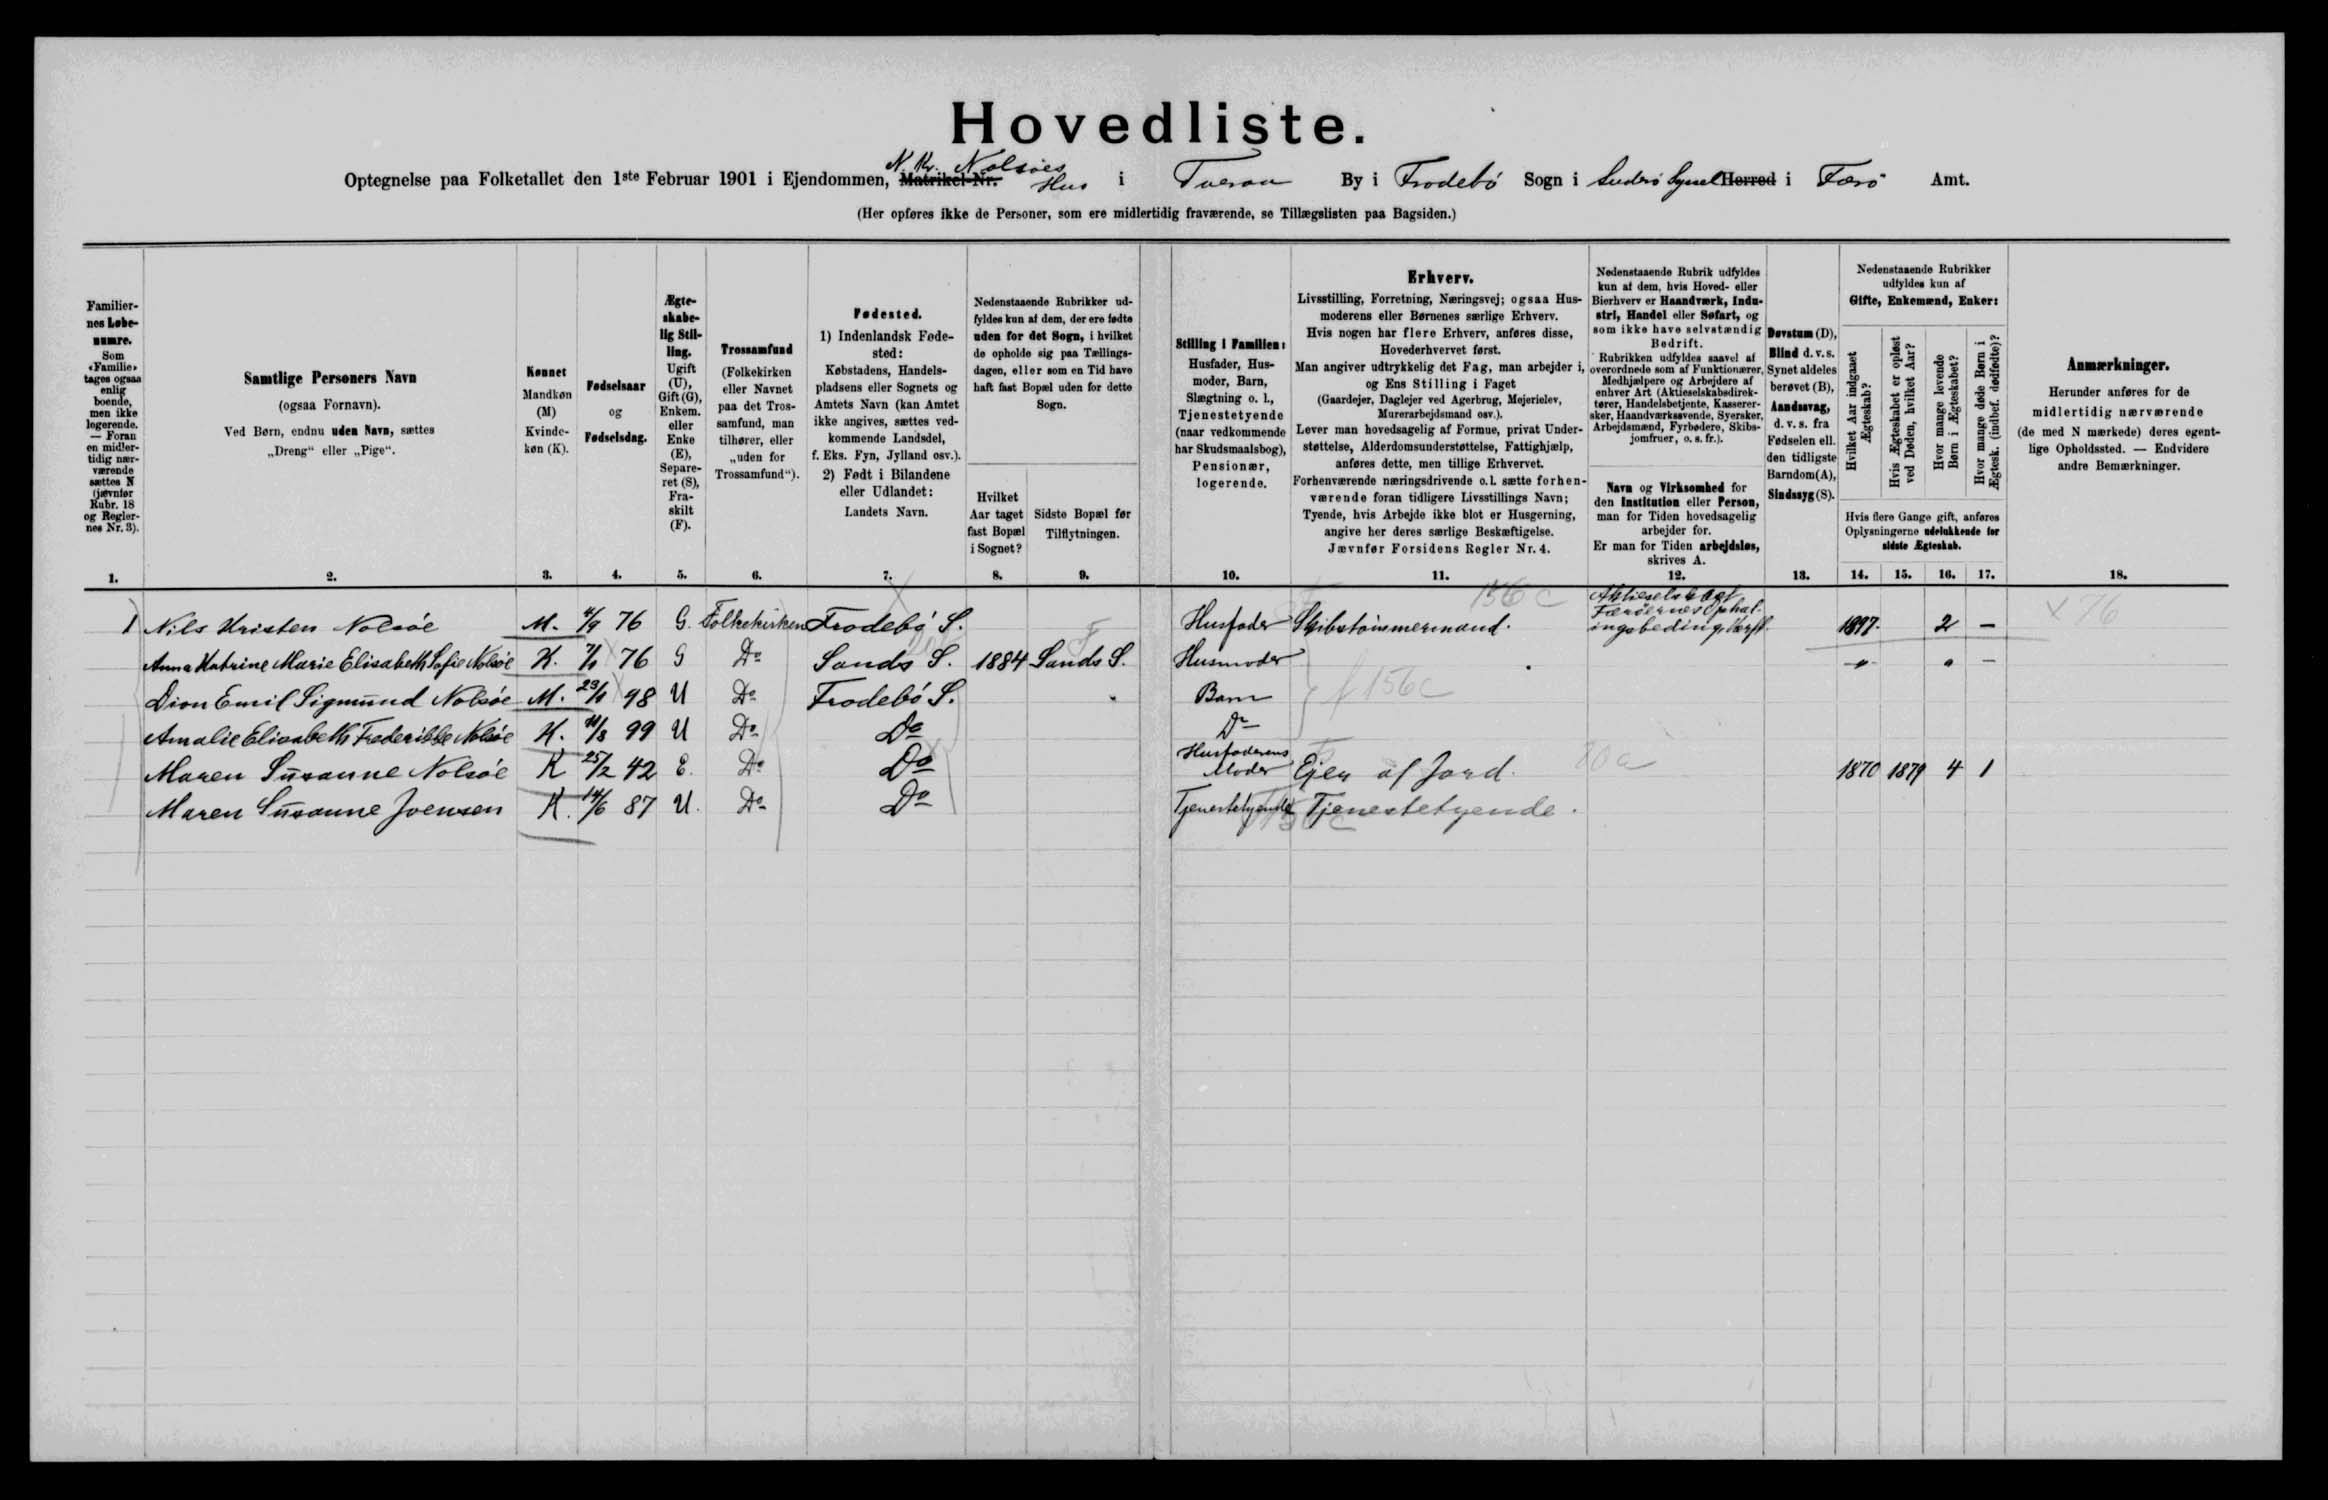 Hovedliste.
Optegnelse paa Folketallet den 1ste Februar 1901 i Ejendommen, Matrikel-Nr. N. Kr. Nolsöes Hus i Tveraa By i Frodebö Sogn i Suderö Syssel Herred i Færö Amt.
(Her opføres ikke de Personer, som ere midlertidig fraværende, se Tillægslisten paa Bagsiden.)
Familiernes Løbenumre. Som «Familie» tages ogsaa enlig boende, men ikke logerende. — Foran en midlertidig nærværende sættes N (jævnfør Rubr. 18 og Reglernes Nr. 3).
Samtlige Personers Navn
(ogsaa Fornavn).
Ved Børn, endnu uden Navn, sættes
„Dreng“ eller „Pige“.
Kønnet
Mandkøn (M)
Kvindekøn (K).
Fødselsaar
og
Fødselsdag.
Ægteskabelig Stilling. Ugift (U), Gift (G), Enkem. eller Enke (E), Separeret (S), Fraskilt (F).
Trossamfund
(Folkekirken eller Navnet paa det Trossamfund, man tilhører, eller „uden for Trossamfund“).
Fødested.
1) Indenlandsk Fødested:
Købstadens, Handelspladsens eller Sognets og Amtets Navn (kan Amtet ikke angives, sættes vedkommende Landsdel, f. Eks. Fyn, Jylland osv.).
2) Født i Bilandene eller Udlandet:
Landets Navn.
Nedenstaaende Rubrikker udfyldes kun af dem, der ere fødte uden for det Sogn, i hvilket de opholde sig paa Tællingsdagen, eller som en Tid have haft fast Bopæl uden for dette Sogn.
Hvilket Aar taget fast Bopæl i Sognet?
Sidste Bopæl før Tilflytningen.
Stilling i Familien:
Husfader, Husmoder, Barn, Slægtning o. l., Tjenestetyende (naar vedkommende har Skudsmaalsbog), Pensionær, logerende.
Erhverv.
Livsstilling, Forretning, Næringsvej; ogsaa Husmoderens eller Børnenes særlige Erhverv.
Hvis nogen har flere Erhverv, anføres disse, Hovederhvervet først.
Man angiver udtrykkelig det Fag, man arbejder i, og Ens Stilling i Faget
(Gaardejer, Daglejer ved Agerbrug, Mejerielev, Murerarbejdsmand osv.).
Lever man hovedsagelig af Formue, privat Understøttelse, Alderdomsunderstøttelse, Fattighjælp, anføres dette, men tillige Erhvervet.
Forhenværende næringsdrivende o. l. sætte forhenværende foran tidligere Livsstillings Navn;
Tyende, hvis Arbejde ikke blot er Husgerning, angive her deres særlige Beskæftigelse.
Jævnfør Forsidens Regler Nr. 4.
Nedenstaaende Rubrik udfyldes kun af dem, hvis Hoved- eller Bierhverv er Haandværk, Industri, Handel eller Søfart, og som ikke have selvstændig Bedrift.
Rubrikken udfyldes saavel af overordnede som af Funktionærer, Medhjælpere og Arbejdere af enhver Art (Aktieselskabsdirektører, Handelsbetjente, Kasserersker, Haandværkssvende, Syersker, Arbejdsmænd, Fyrbødere, Skibsjomfruer, o. s. fr.).
Navn og Virksomhed for den Institution eller Person, man for Tiden hovedsagelig arbejder for.
Er man for Tiden arbejdsløs, skrives A.
Døvstum (D), Blind d. v. s. Synet aldeles berøvet (B), Aandssvag, d. v. s. fra Fødselen ell. den tidligste Barndom (A), Sindssyg (S).
Nedenstaaende Rubrikker udfyldes kun af
Gifte, Enkemænd, Enker:
Hvilket Aar indgaaet Ægteskab?
Hvis Ægteskabet er opløst ved Døden, hvilket Aar?
Hvor mange levende Børn i Ægteskabet?
Hvor mange døde Børn i Ægtesk. (indbef. dødfødte)?
Hvis flere Gange gift, anføres Oplysningerne udelukkende for sidste Ægteskab.
Anmærkninger.
Herunder anføres for de midlertidig nærværende (de med N mærkede) deres egentlige Opholdssted. — Endvidere andre Bemærkninger.
1. 2. 3. 4. 5. 6. 7. 8. 9. 10. 11. 12. 13. 14. 15. 16. 17. 18.
1 Nils Kristen Nolsöe M. 4/9 76 G. Folkekirken Frodebö S. Husfader Skibstömmermand. 156 c Aktieselskabet Færöernes Ophalingsbeding, Værft. 1897. 2 — × 76
Anna Katrine Marie Elisabeth Sofie Nolsöe K. 7/1 76 G Do Sands S. 1884 Sands S. Husmoder " " —
Dion Emil Sigmund Nolsöe M. 23/1 98 U Do Frodebö S. Barn f 156 c
Amalie Elisabeth Frederikke Nolsöe K. 11/8 99 U Do Do Do
Maren Susanne Nolsöe K 25/2 42 E. Do Do Husfaderens Moder Ejer af Jord. 1870 1879 4 1
Maren Susanne Joensen K. 14/6 87 U. Do Do Tjenestetyende Tjenestetyende.